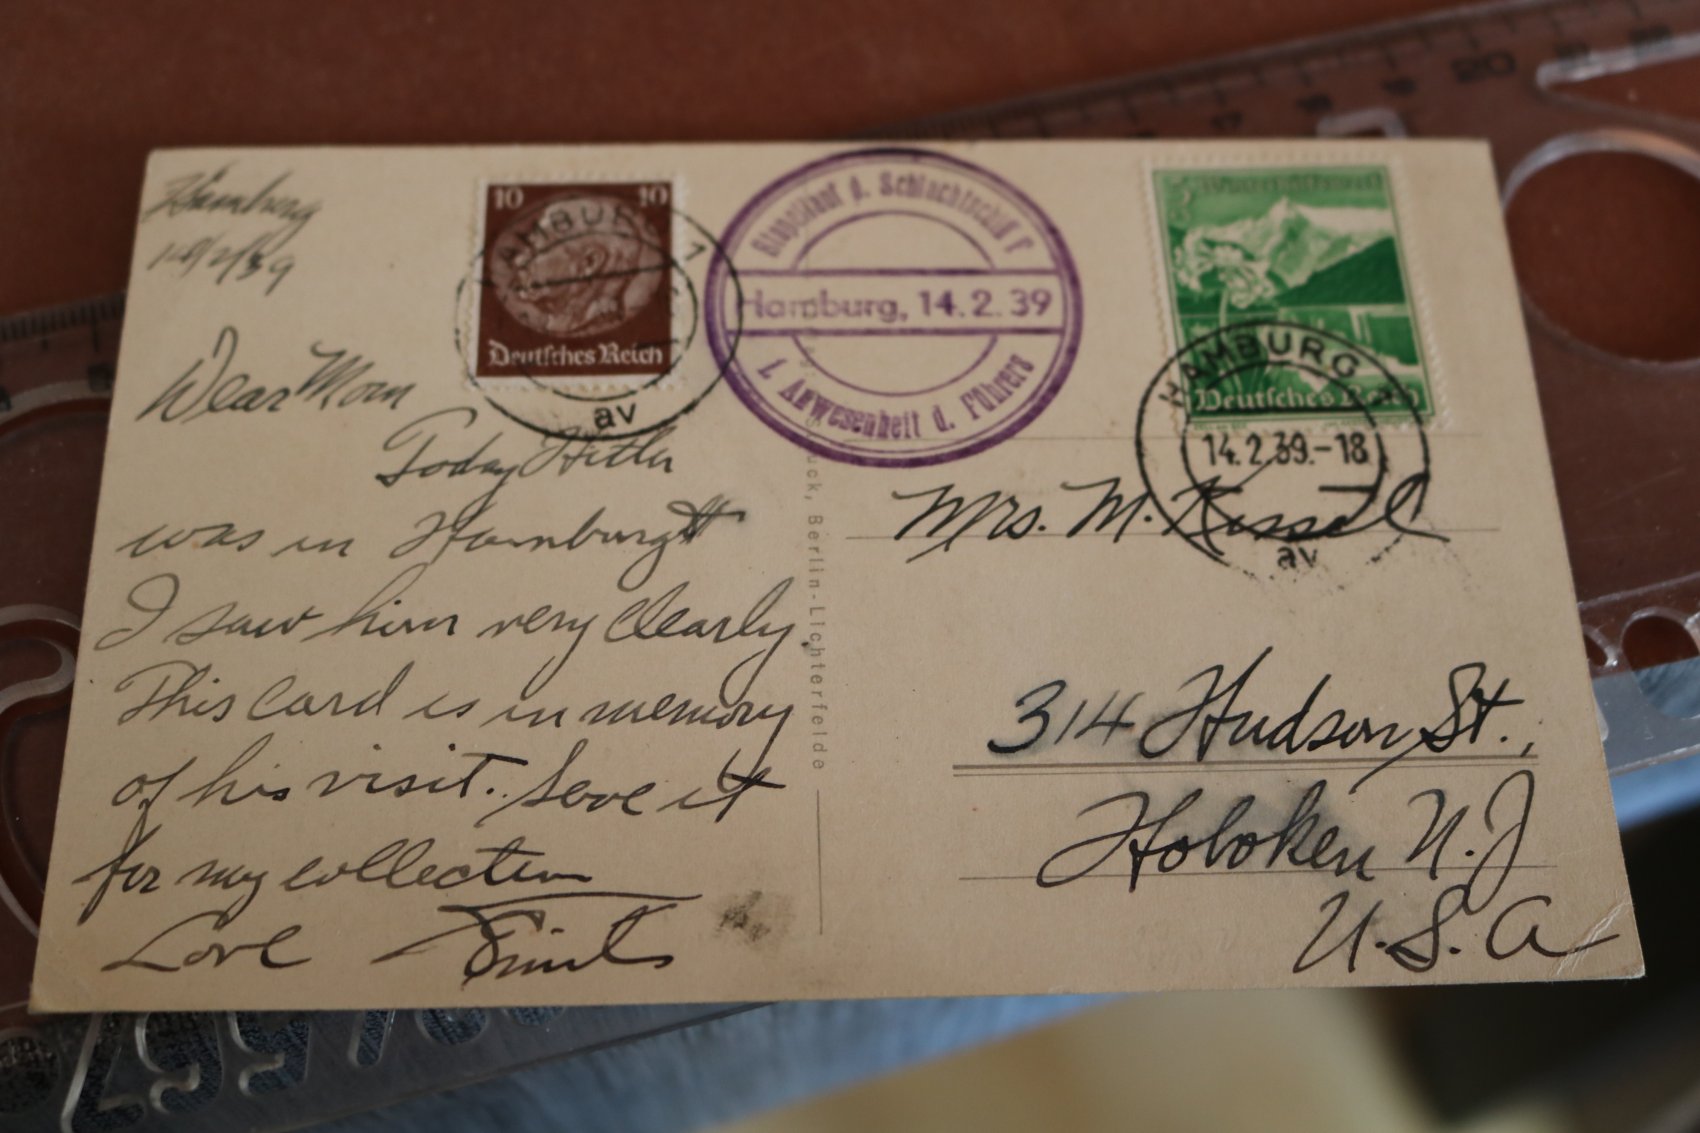 Hamburg
14/2/39
Dear Mom
Today Hitler
was in Hamburg
I saw him very clearly.
This card is in memory
of his visit. Save it
for my collection
Love
10 10
Deutsches Reich
HAMBURG 1
av
Stapellauf d. Schlachtschiff F
Hamburg, 14.2.39
i. Anwesenheit d. Führers
Deutsches Reich
HAMBURG
14.2.39.-18
av
uck, Berlin-Lichterfelde
Mrs. M. Kissel
314 Hudson St.,
Hoboken N.J
U.S.A
20